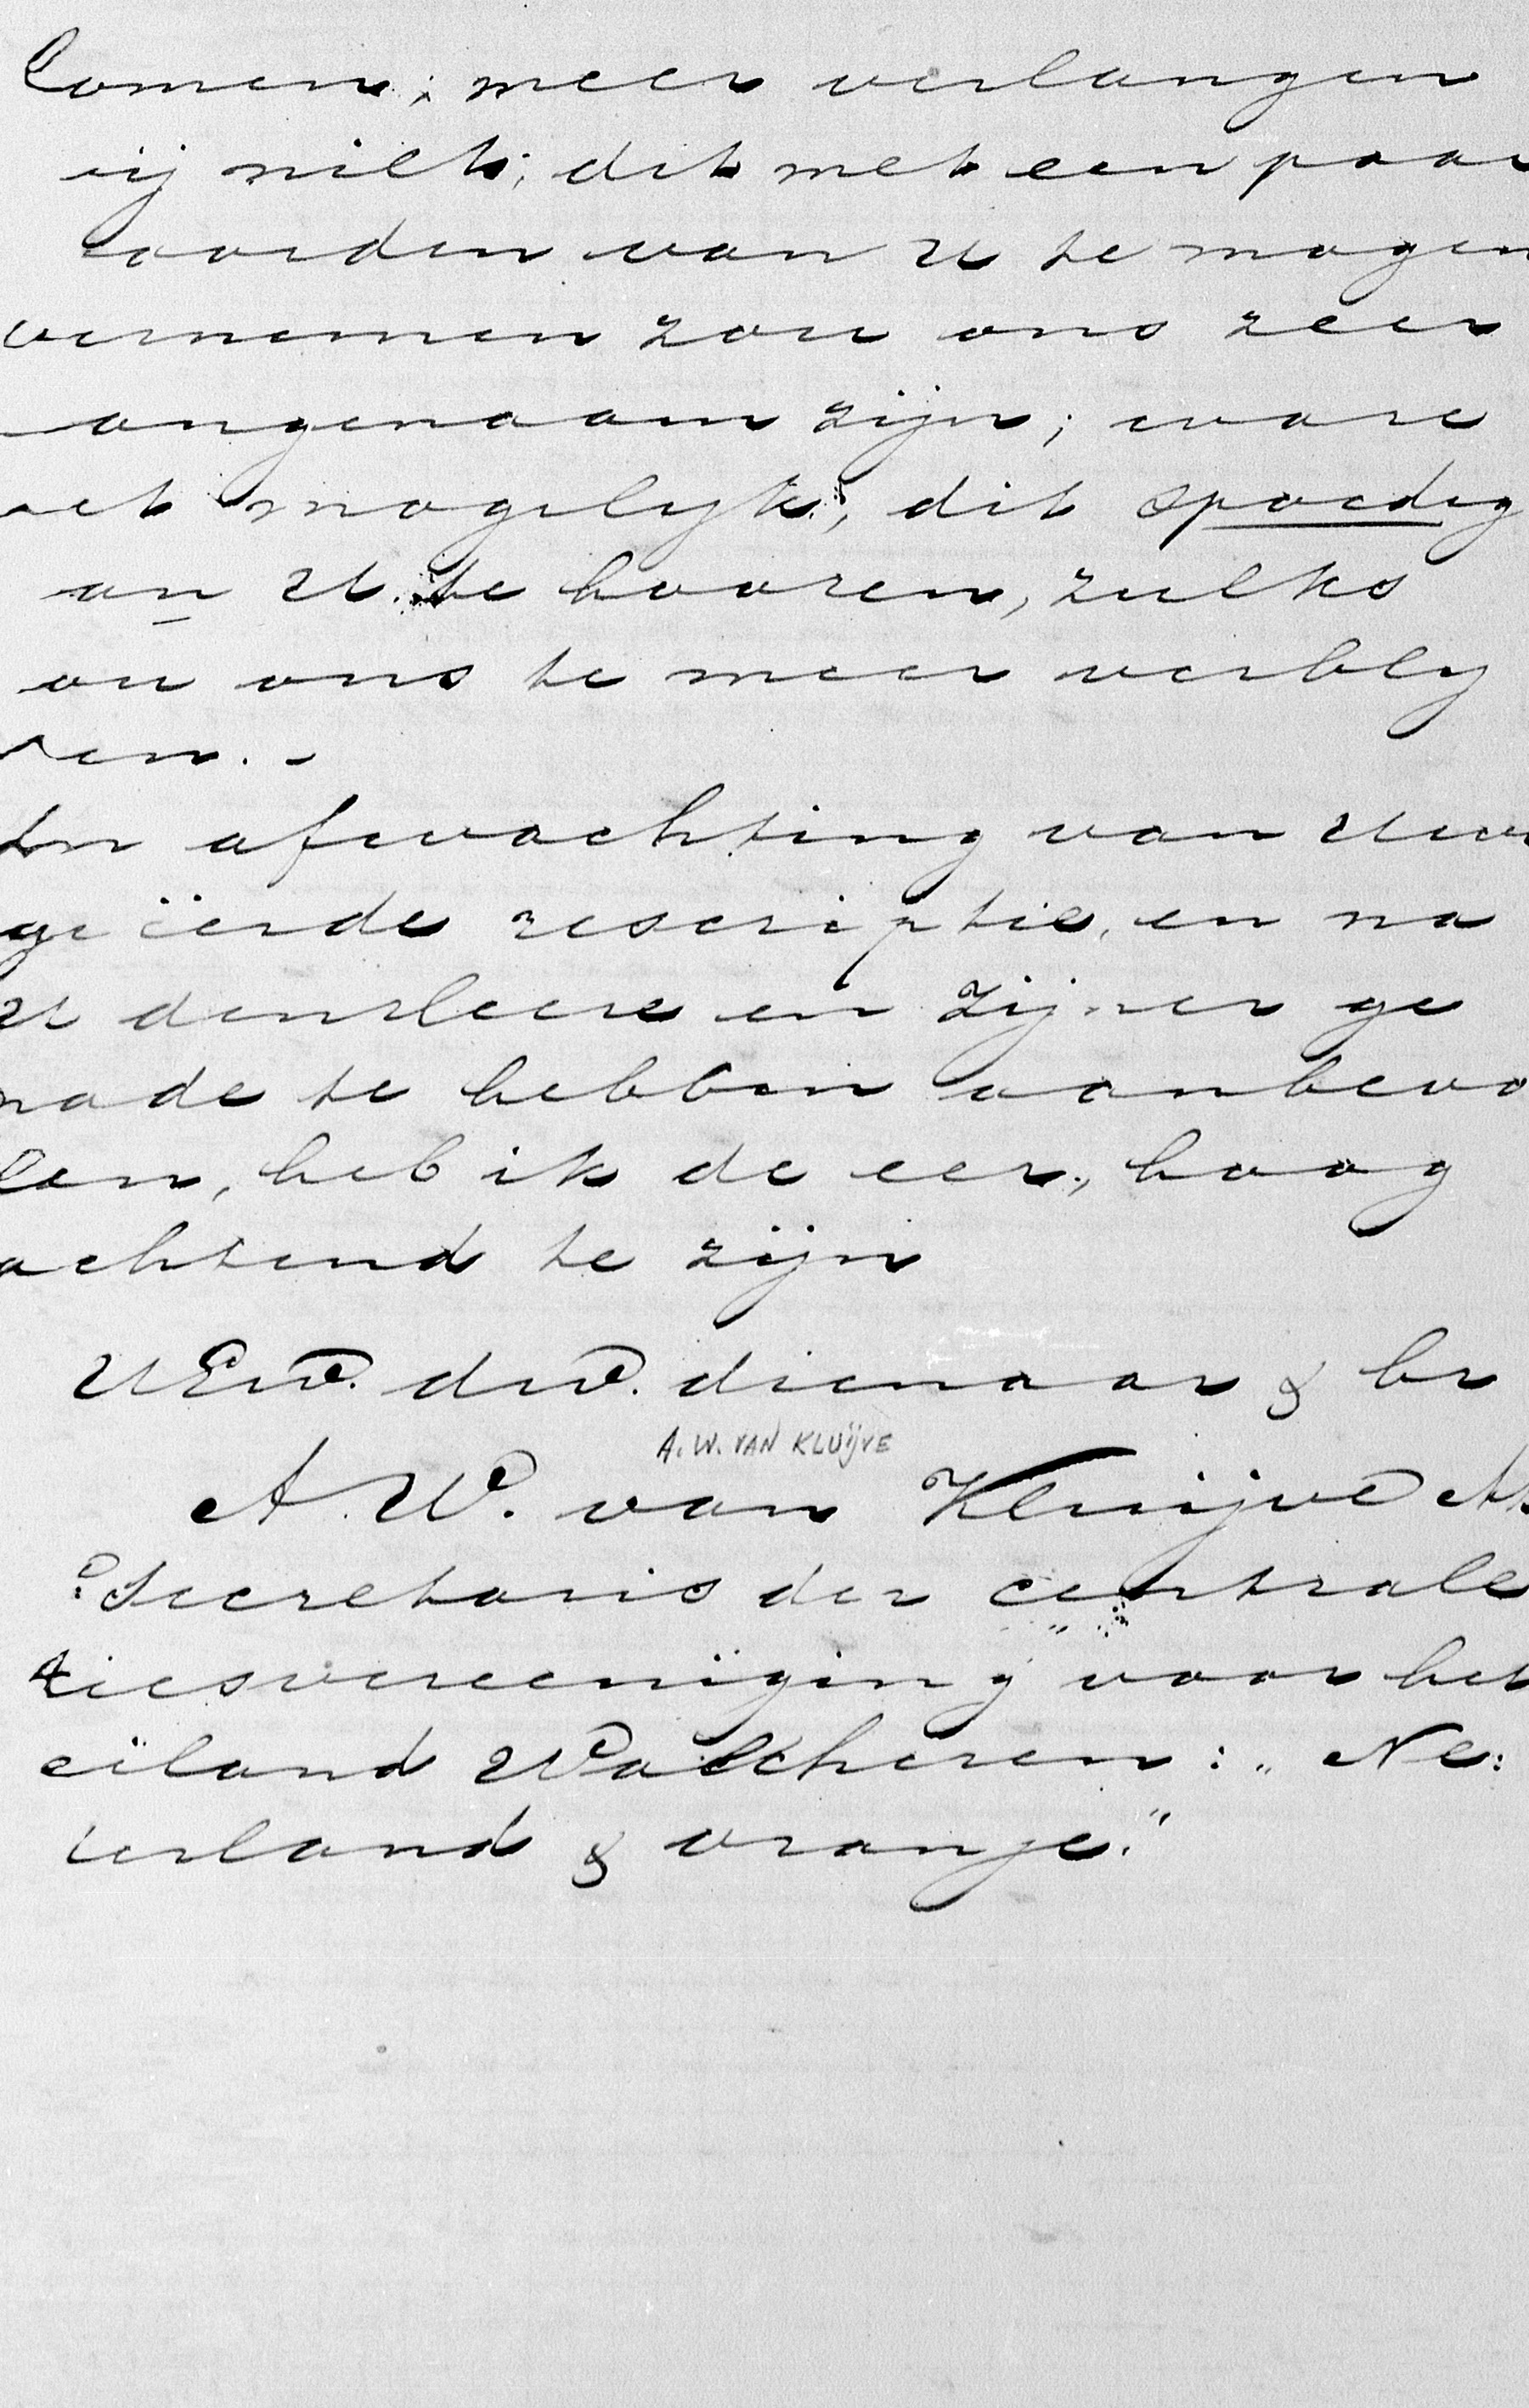 komen; meer verlangen
ij niet; dit met een paar
woorden van U te mogen
vernemen zou ons zeer
angenaam zijn; ware
et mogelijk, dit spoedig
an U te hooren, zulks
ou ons te meer verbly
den. -
In afwachting van Uwe
geëerde rescriptie, en na
U den Heere en Zijner ge
nade te hebben aanbevo
len, heb ik de eer, hoog
achtend te zijn
UEw. dw. dienaar & br
A.W. VAN KLUIJVE
A. W. van Kluijve
Secretaris der centrale
kiesvereeniging voor het
eiland Walcheren: „Ne:
derland & Oranje."